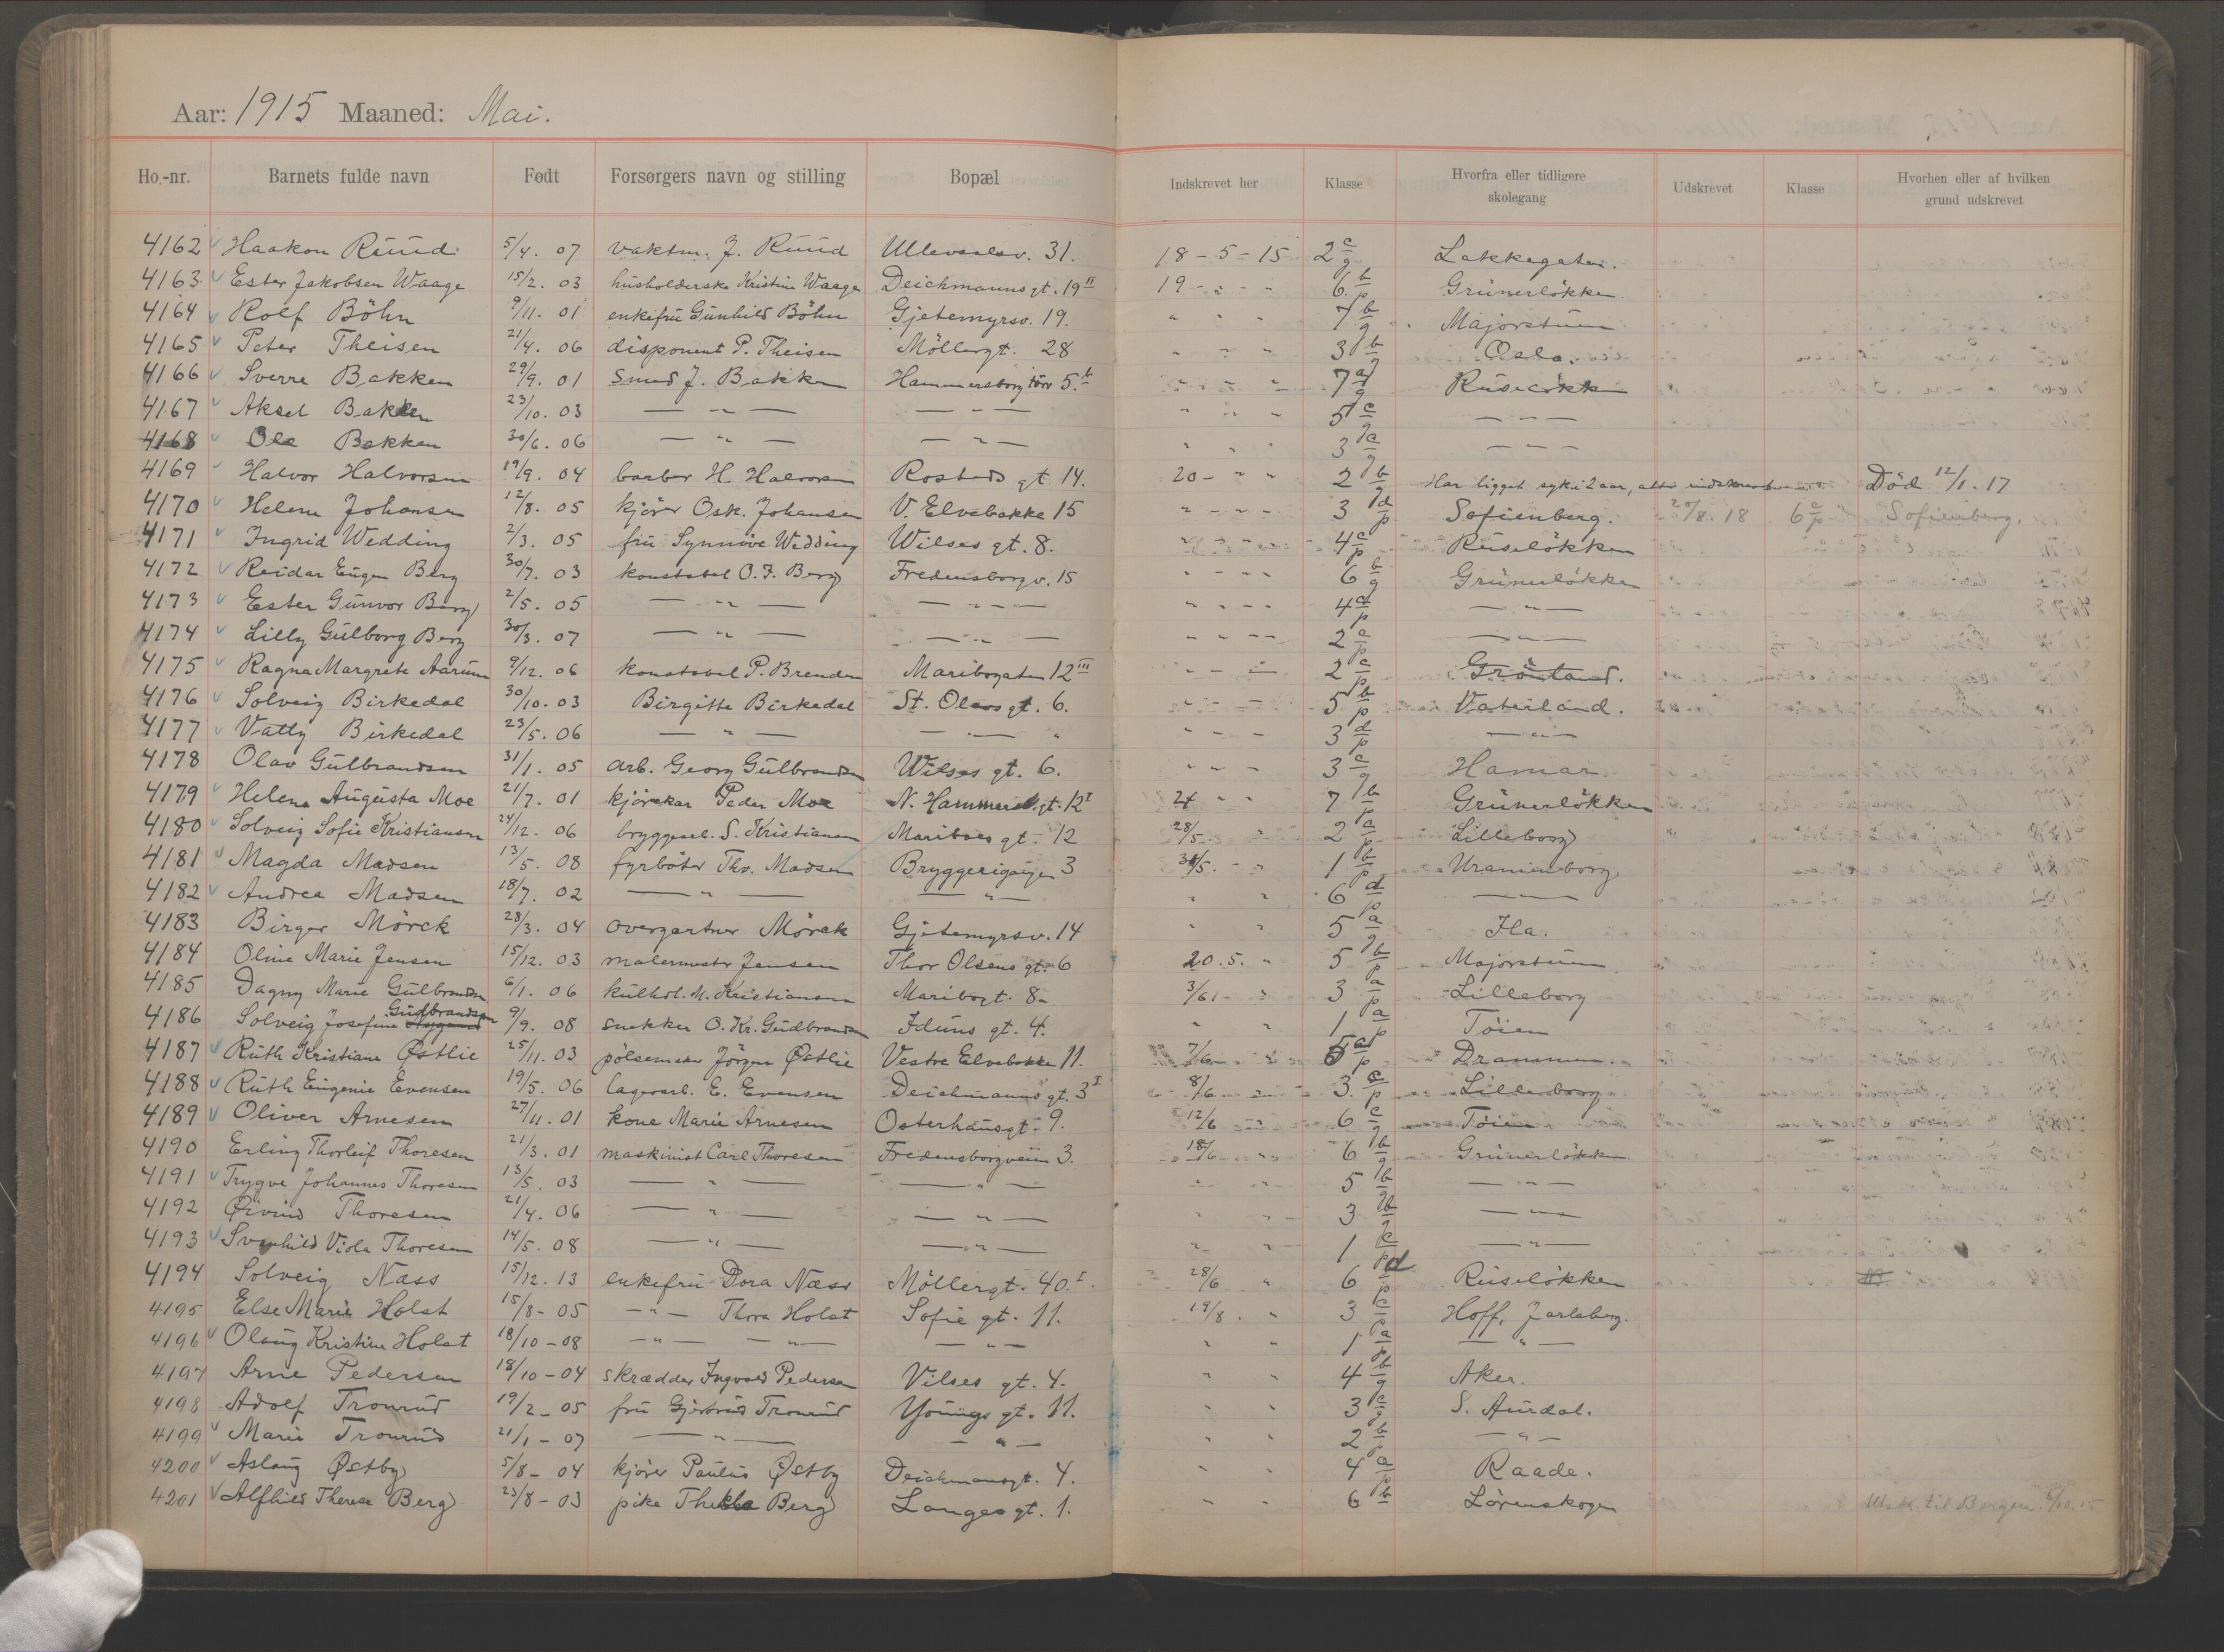 Aar: 1915 Maaned: Mai.
Ho.-nr. Barnets fulde navn Født Forsørgers navn og stilling Bopæl Indskrevet her Klasse Hvorfra eller tidligere skolegang Udskrevet Klasse Hvorhen eller af hvilken grund udskrevet
4162 Haakon Ruud 5/4. 07 vaktm. J. Ruud Ullevaalsv. 31. 18-5-15 2 c/g Lakkegaten.
4163 Ester Jakobsen Waage 15/2. 03 husholderske Kristine Waage Deichmannsgt. 19 II 19 - " - " 6 b/p Grünerlökken.
4164 Rolf Böhn 9/11. 01 enkefru Gunhild Böhn Gjetemyrsv. 19. " " " 7 b/g Majorstuen
4165 Peter Theisen 21/4. 06 disponent P. Theisen Möllergt. 28 " " " 3 b/g Oslo.
4166 Sverre Bakken 29/9. 01 Smed J. Bakken Hammersborg törv 5.b " " " 7 a/g Ruselökken
4167 Aksel Bakken 23/10. 03 — " — — " — " " " 5 c/g — " —
4168 Ole Bakken 30/6. 06 — " — — " — " " " 3 a/g — " —
4169 Halvor Halvorsen 19/9. 04 barber H. Halvorsen Rosteds gt. 14. 20 - " " 2 b/g Har ligget syk i 2 aar, Död 12/1. 17
4170 Helene Johansen 12/8. 05 kjörer Osk. Johansen V. Elvebakke 15 " - " - " 3 d/p Sofienberg. 20/8. 18 6 c/p Sofienberg.
4171 Ingrid Wedding 2/3. 05 fru Synnöve Wedding Wilses gt. 8. " - " - " 4 c/p Ruselökken
4172 Reidar Eugen Berg 30/7. 03 konstabel O. F. Berg Fredensborgv. 15 " - " - " 6 b/g Grünerlökken
4173 Ester Gunvor Berg 2/5. 05 — " — — " — " - " - " 4 a/p — " —
4174 Lilly Gulborg Berg 30/3. 07 — " — — " — " " " 2 a/p — " —
4175 Ragna Margrete Aarum 9/12. 06 konstabel P. Brenden Maribogaten 12 III " - " 2 c/p Grönland.
4176 Solveig Birkedal 30/10. 03 Birgitte Birkedal St. Olavs gt. 6. " - " 5 b/p Vaterland.
4177 Vatty Birkedal 23/5. 06 — " — — " — " - " 3 d/p — " —
4178 Olav Gulbrandsen 31/1. 05 arb. Georg Gulbrandsen Wilses gt. 6. " - " 3 c/g Hamar.
4179 Helena Augusta Moe 21/7. 01 kjörekar Peder Moe N. Hammersb.gt. 12 I 21 " " 7 b/p Grünerlökken
4180 Solveig Sofie Kristiansen 24/12. 06 bryggearb. S. Kristiansen Mariboes gt. 12 28/5. " 2 a/p Lilleborg
4181 Magda Madsen 13/5. 08 fyrböter Thv. Madsen Bryggerigangen 3 31/5. - " 1 b/p Uranienborg
4182 Andrea Madsen 18/7. 02 — " — — " — " " 6 d/p — " —
4183 Birger Mörck 28/3. 04 overgartner Mörck Gjetemyrsv. 14 " " 5 a/g Ila.
4184 Oline Marie Jensen 15/12. 03 malermester Jensen Thor Olsens gt. 6 20.5. " 5 b/p Majorstuen
4185 Dagny Marie Gulbrandsen 6/1. 06 kulhdl. M. Kristiansen Maribogt. 8. 3/6 - " 3 a/p Lilleborg
4186 Solveig Josefine Gudbrandsen 9/9. 08 snekker O. Kr. Gudbrandsen Iduns gt. 4. " " 1 a/p Töien
4187 Ruth Kristiane Østlie 25/11. 03 pölsemaker Jörgen Østlie Vestre Elvebakke 11. 7/6 - " 5 a/p Drammen.
4188 Ruth Eugenie Evensen 19/5. 06 lagerarb. E. Evensen Deichmanns gt. 3 I 8/6 " 3 c/p Lilleborg
4189 Oliver Arnesen 27/11. 01 kone Marie Arnesen Osterhausgt. 9. 12/6 " 6 c/g Töien
4190 Erling Thorleif Thoresen 21/3. 01 maskinist Carl Thoresen Fredensborgveien 3. 18/6 " 6 b/g Grünerlökken
4191 Trygve Johannes Thoresen 13/5. 03 — " — — " — " " 5 b/g — " —
4192 Øivind Thoresen 21/4. 06 — " — — " — " " 3 b/g — " —
4193 Svanhild Viola Thoresen 14/5. 08 — " — — " — " " 1 c/p — " —
4194 Solveig Næss 15/12. 13 enkefru Dora Næss Möllergt. 40. I 28/6 " 6 d/p Ruselökken
4195 Else Marie Holst 15/8 - 05 — " — Thora Holst Sofie gt. 11. 19/8. " 3 c/p Hoff, Jarlsberg.
4196 Olaug Kristine Holst 18/10 - 08 — " — — " — — " — " " 1 a/p — " —
4197 Arne Pedersen 18/10 - 04 skrædder Ingvald Pedersen Vilses gt. 4. " " 4 b/g Aker.
4198 Adolf Tronrud 19/2 - 05 fru Gjertrud Tronrud Youngs gt. 11. " " 3 c/g S. Aurdal.
4199 Marie Tronrud 21/1 - 07 — " — — " — " " 2 b/p — " —
4200 Aslaug Østby 5/8 - 04 kjörer Paulus Østby Deichmansgt. 4. " " 4 a/p Raade.
4201 Alfhild Therese Berg 23/8 - 03 pike Thekla Berg Langes gt. 1. " " 6 b/p Lörenskogen Utsk. til Bergen 6/10. 15